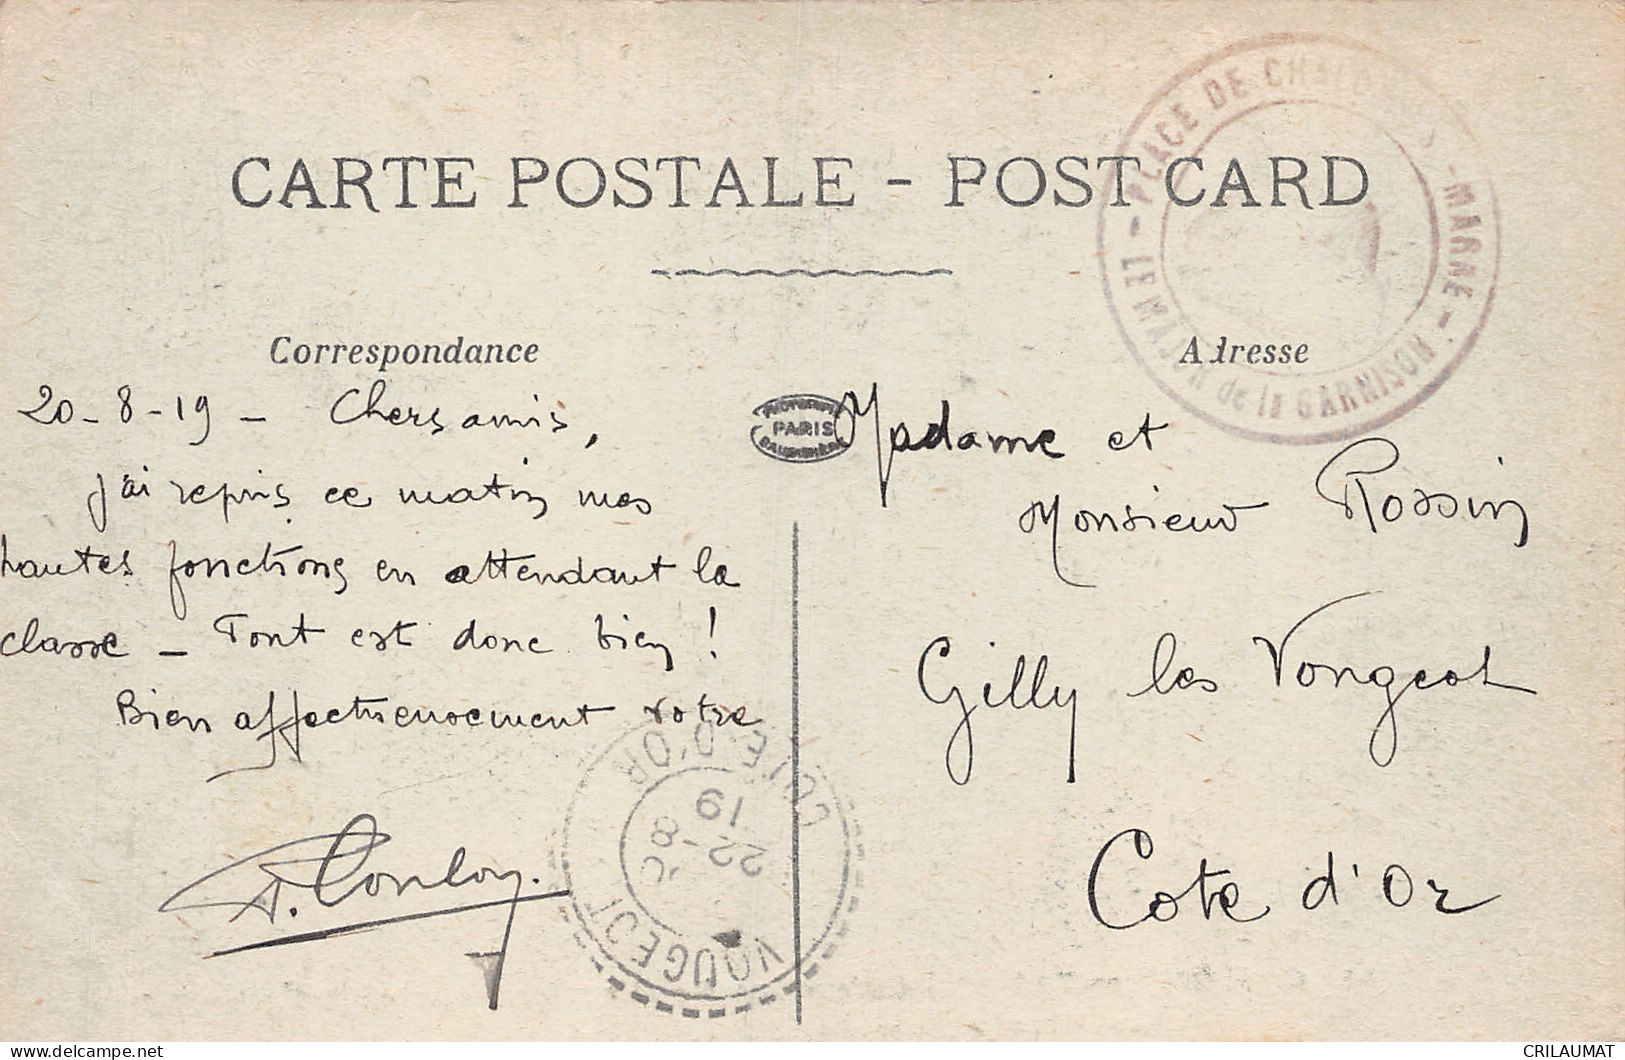 CARTE POSTALE - POST CARD
Correspondance
20-8-19 - Chers amis,
J'ai repris ce matin mes
hautes fonctions en attendant la
classe - Tout est donc bien !
Bien affectueusement votre
Adresse
Madame et
Monsieur Rossin
Gilly les Vougeot
Cote d'Or
PLACE DE CHALONS-S-MARNE
LE MAJOR de la GARNISON
PARIS
VOUGEOT
COTE D'OR
22-8
19
CRILAUMAT